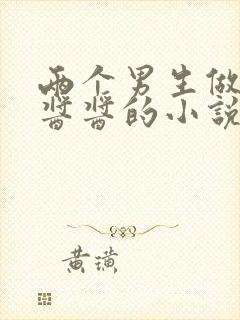 两个男生做
酱酱的小說
黄璜